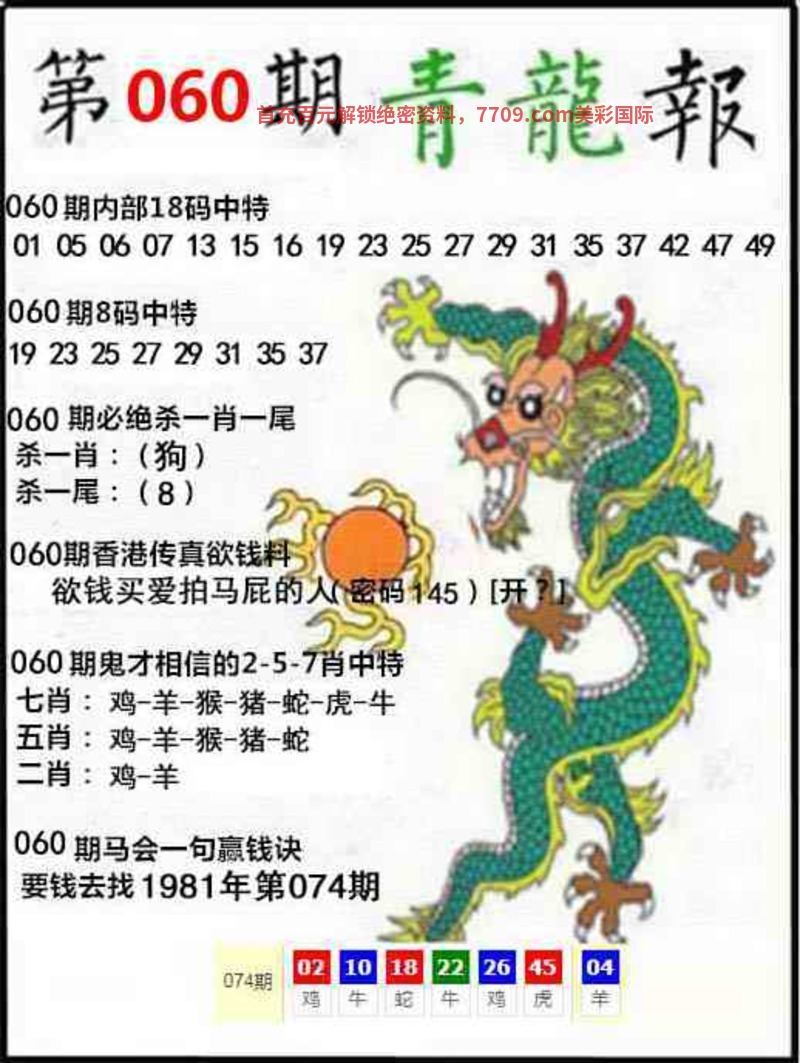 第060期青龍報
首充百元解锁绝密资料，7709.com美彩国际
060期内部18码中特
01 05 06 07 13 15 16 19 23 25 27 29 31 35 37 42 47 49
060期8码中特
19 23 25 27 29 31 35 37
060期必绝杀一肖一尾
杀一肖：（狗）
杀一尾：（8）
060期香港传真欲钱料
欲钱买爱拍马屁的人（密码145）[开？]
060期鬼才相信的2-5-7肖中特
七肖：鸡-羊-猴-猪-蛇-虎-牛
五肖：鸡-羊-猴-猪-蛇
二肖：鸡-羊
060期马会一句赢钱诀
要钱去找1981年第074期
074期 02 10 18 22 26 45 04
鸡 牛 蛇 牛 鸡 虎 羊